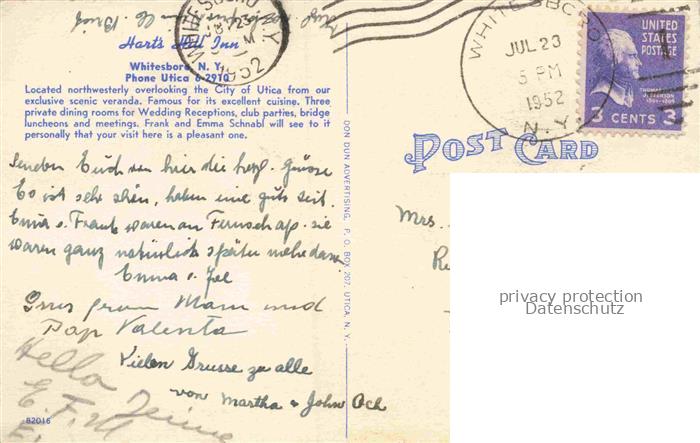 Hart's Hill Inn
Whitesboro, N. Y.
Phone Utica 6-2910
Located northwesterly overlooking the City of Utica from our
exclusive scenic veranda. Famous for its excellent cuisine. Three
private dining rooms for Wedding Receptions, club parties, bridge
luncheons and meetings. Frank and Emma Schnabl will see to it
personally that your visit here is a pleasant one.
Senden Euch von hier die herzl. Grüsse
Es ist sehr schön, haben eine gute Zeit.
Emma u. Frank waren am Fernseh. sie
waren ganz natürlich später mehr davon
Emma u. Joe
Grus from Mam und
Pap Valenta
Vielen Grusse zu alle
von Martha & John Och
Hello
E. F. M
82016
DON DUN ADVERTISING, P. O. BOX 207, UTICA, N. Y.
WHITESBORO, N.Y.
1952
WHITESBORO
JUL 23
5 PM
1952
N. Y.
UNITED
STATES
POSTAGE
THOMAS
JEFFERSON
3 CENTS 3
POST CARD
Mrs.
privacy protection
Datenschutz